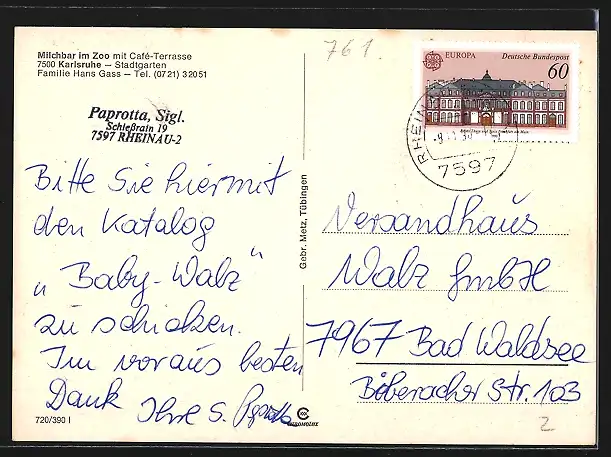 Milchbar im Zoo mit Café-Terrasse
7500 Karlsruhe – Stadtgarten
Familie Hans Gass – Tel. (0721) 32051
Paprotta, Sigl.
Schleßrain 19
7597 RHEINAU-2
Bitte Sie hiermit
den Katalog
„Baby-Walz“
zu schicken.
Im voraus besten
Dank Ihre S. Paprotta
720/390 I
Gebr. Metz, Tübingen
761.
EUROPA Deutsche Bundespost
60
RHEINAU
7597
Versandhaus
Walz GmbH
7967 Bad Waldsee
Biberacher Str. 103
2